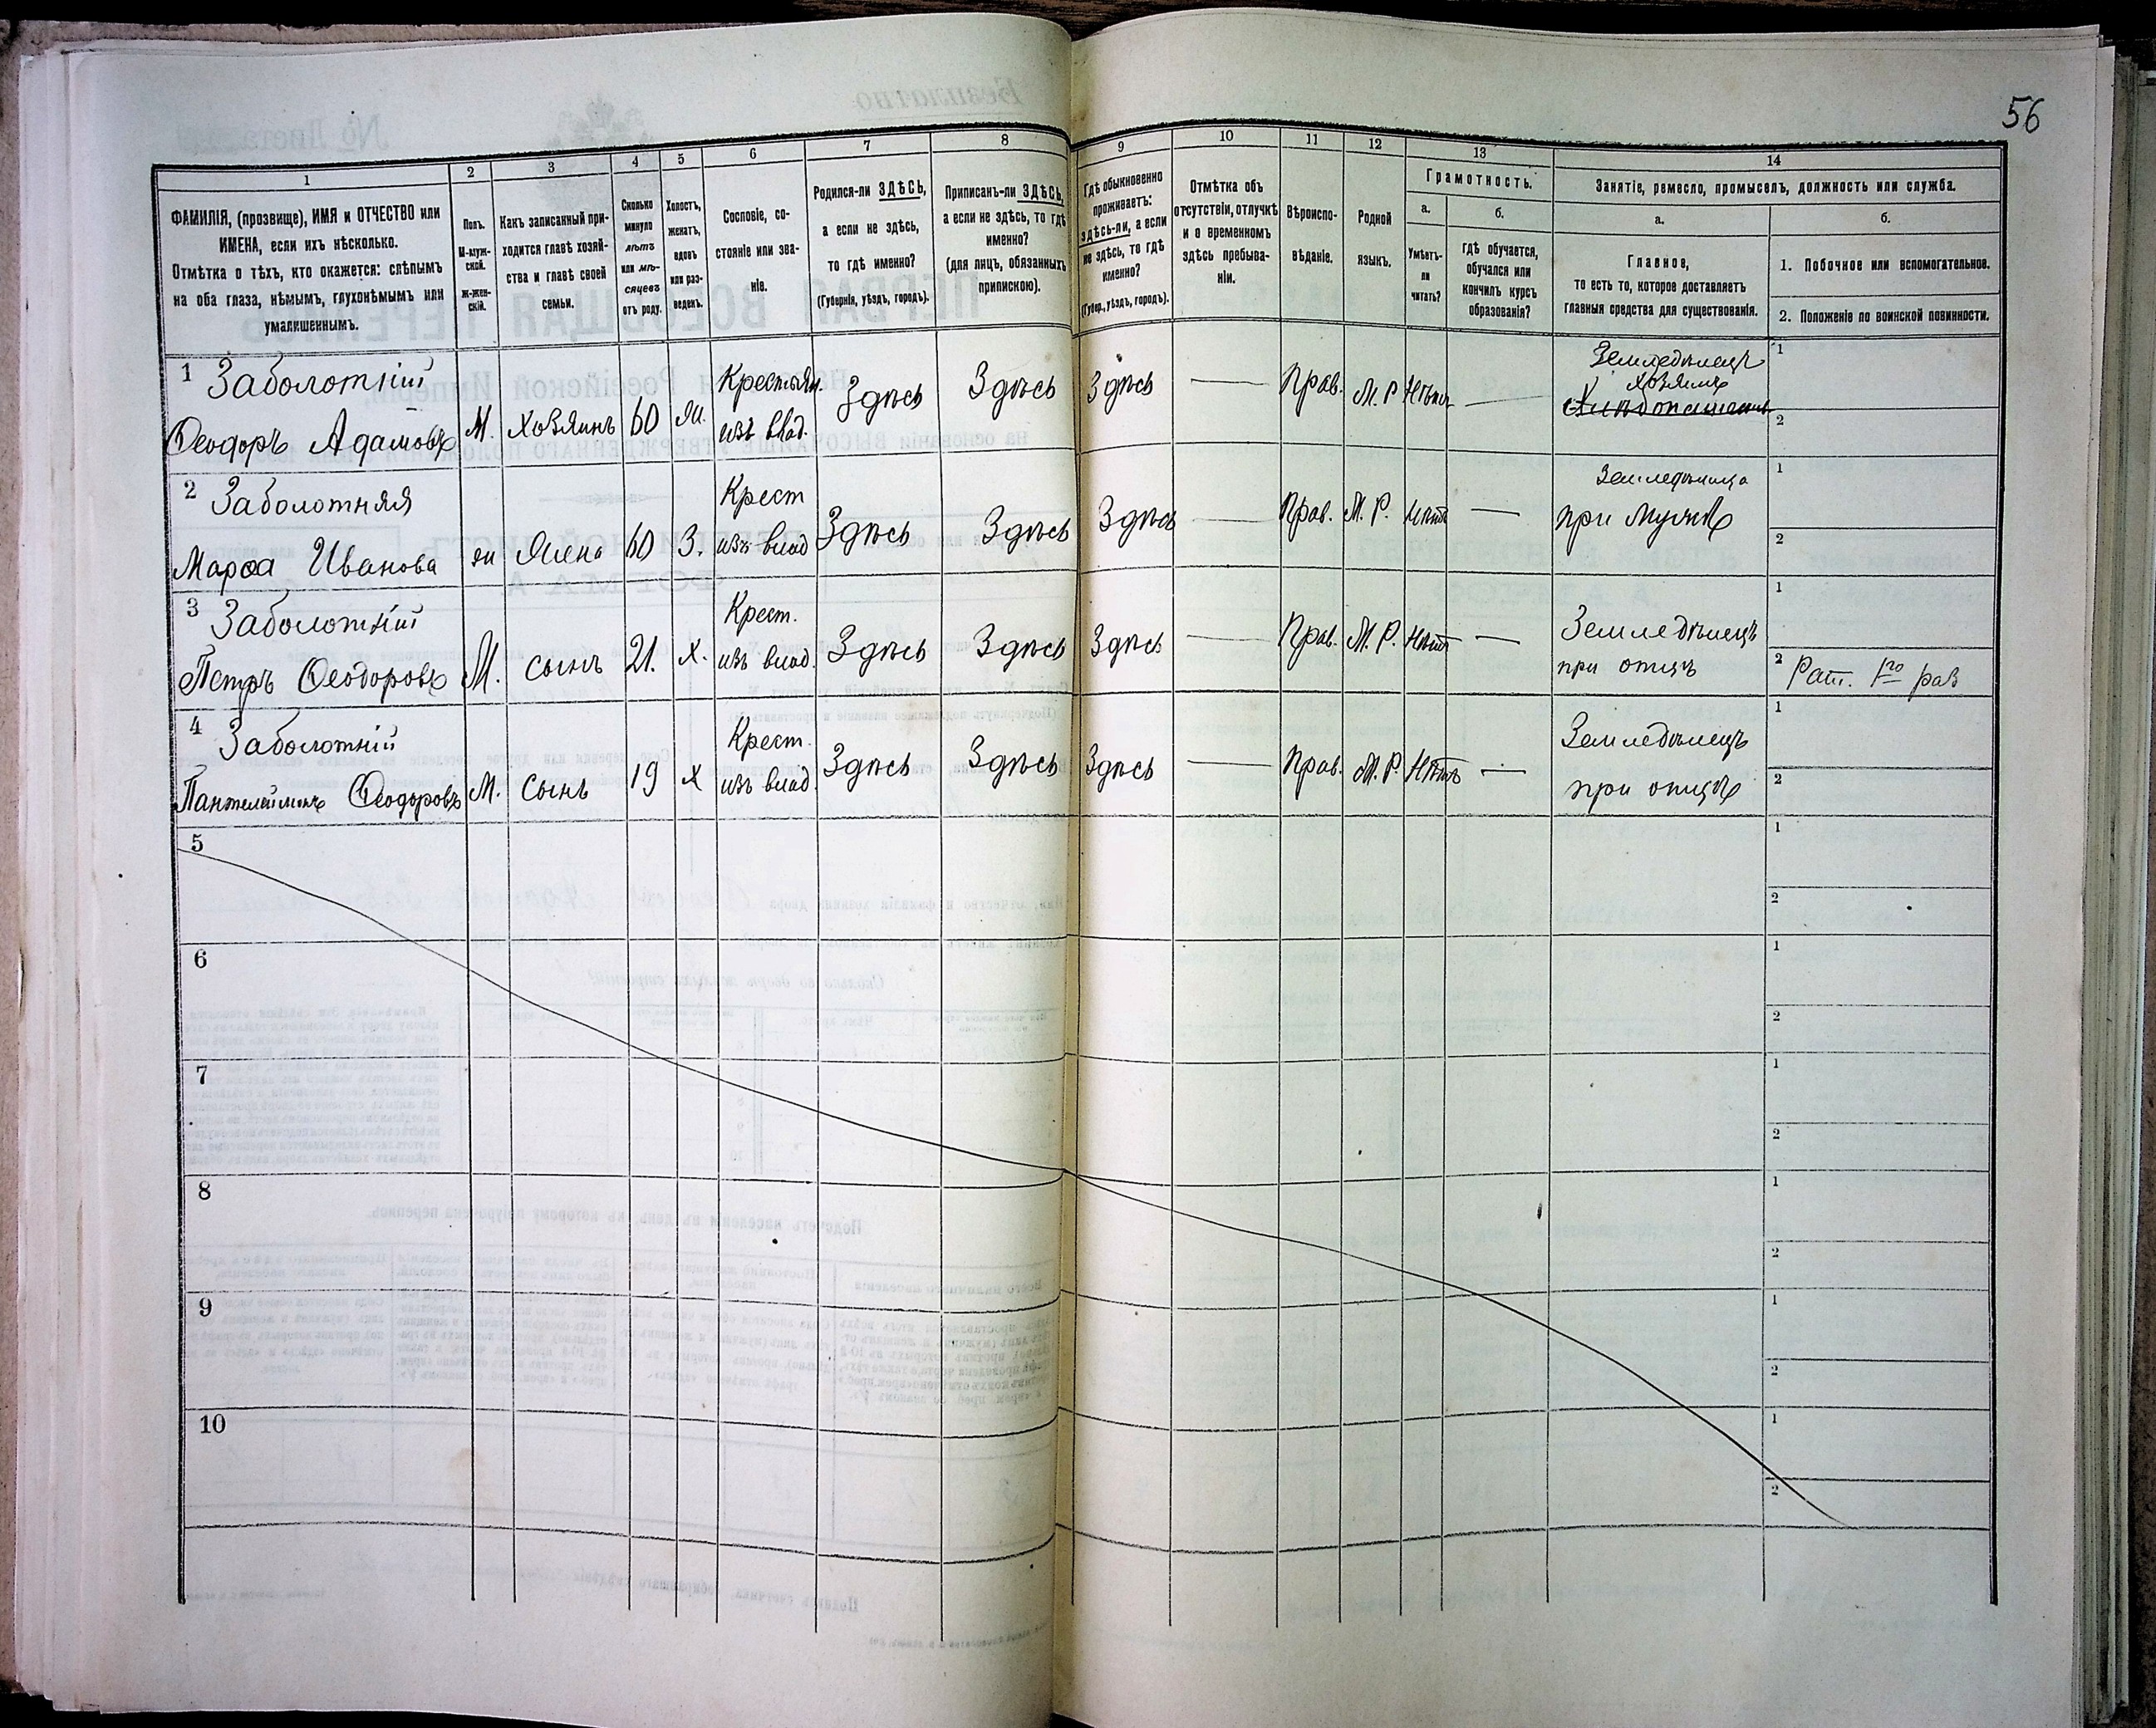 56
1
2
3
4
5
6
7
8
9
10
11
12
13
14
ФАМИЛІЯ, (прозвище), ИМЯ и ОТЧЕСТВО или
ИМЕНА, если ихъ нѣсколько.
Отмѣтка о тѣхъ, кто окажется: слѣпымъ
на оба глаза, нѣмымъ, глухонѣмымъ или
умалишеннымъ.
Полъ.
М-муж-
ской.
Ж-жен-
скій.
Какъ записанный при-
ходится главѣ хозяй-
ства и главѣ своей
семьи.
Сколько
минуло
лѣтъ
или мѣ-
сяцевъ
отъ роду.
Холостъ,
женатъ,
вдовъ
или раз-
веденъ.
Сословіе, со-
стояніе или зва-
ніе.
Родился-ли ЗДѢСЬ,
а если не здѣсь,
то гдѣ именно?
(Губернія, уѣздъ, городъ).
Приписанъ-ли ЗДѢСЬ,
а если не здѣсь, то гдѣ
именно?
(для лицъ, обязанныхъ
припискою).
Гдѣ обыкновенно
проживаетъ:
здѣсь-ли, а если
не здѣсь, то гдѣ
именно?
(Губер., уѣздъ, городъ).
Отмѣтка объ
отсутствіи, отлучкѣ
и о временномъ
здѣсь пребыва-
ніи.
Вѣроиспо-
вѣданіе.
Родной
языкъ.
Грамотность.
а.
Умѣетъ-
ли
читать?
б.
гдѣ обучается,
обучался или
кончилъ курсъ
образованія?
Занятіе, ремесло, промыселъ, должность или служба.
а.
Главное,
то есть то, которое доставляетъ
главныя средства для существованія.
б.
1. Побочное или вспомогательное.
2. Положеніе по воинской повинности.
1 Заболотній
Ѳеодоръ Адамовъ
М.
хозяинъ
60
ж.
Крестьян.
изъ влад.
Здѣсь
Здѣсь
Здѣсь
Прав.
М. Р
Нѣтъ
Земледѣлецъ
хозяинъ
Хлѣбопашецъ
1
2
2 Заболотняя
Марѳа Иванова
ж
Жена
60
З.
Крест
изъ влад
Здѣсь
Здѣсь
Здѣсь
Прав.
М. Р.
Нѣтъ
при мужѣ
1
2
3 Заболотній
Петръ Ѳеодоровъ
М.
сынъ
21.
х.
Крест.
изъ влад.
Здѣсь
Здѣсь
Здѣсь
Прав.
М. Р.
Нѣтъ
Земледѣлецъ
при отцѣ
1
2 Рат. 1го раз
4 Заболотній
Пантелеймонъ Ѳеодоровъ
М.
Сынъ
19
х
Крест.
изъ влад.
Здѣсь
Здѣсь
Здѣсь
Прав.
М. Р.
Нѣтъ
Земледѣлецъ
при отцѣ
1
2
5
1
2
6
1
2
7
1
2
8
1
2
9
1
2
10
1
2